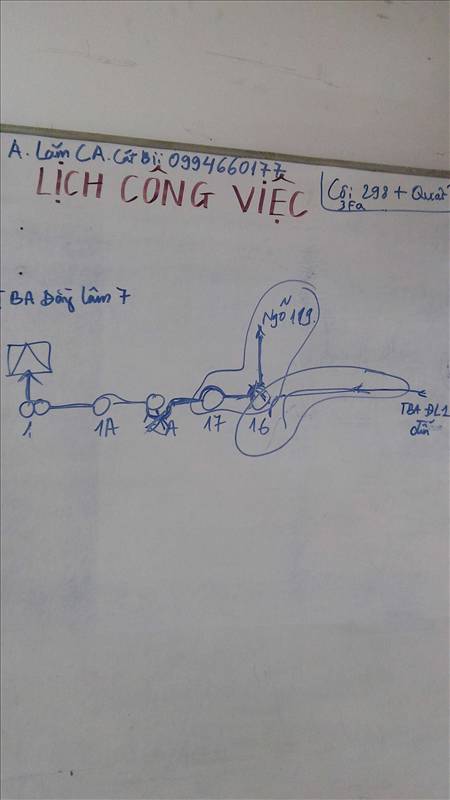 A. Lắm CA. Cát Bi: 0994660177
LỊCH CÔNG VIỆC
Cội 298 + Quát
3Fa
TBA Đằng Lâm 7
Ngõ 199
1
1A
A
17
16
TBA ĐL1